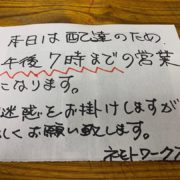 本日は配達のため
午後7時までの営業
になります。
迷惑をお掛けしますが
しくお願い致します。
ネモトワークス